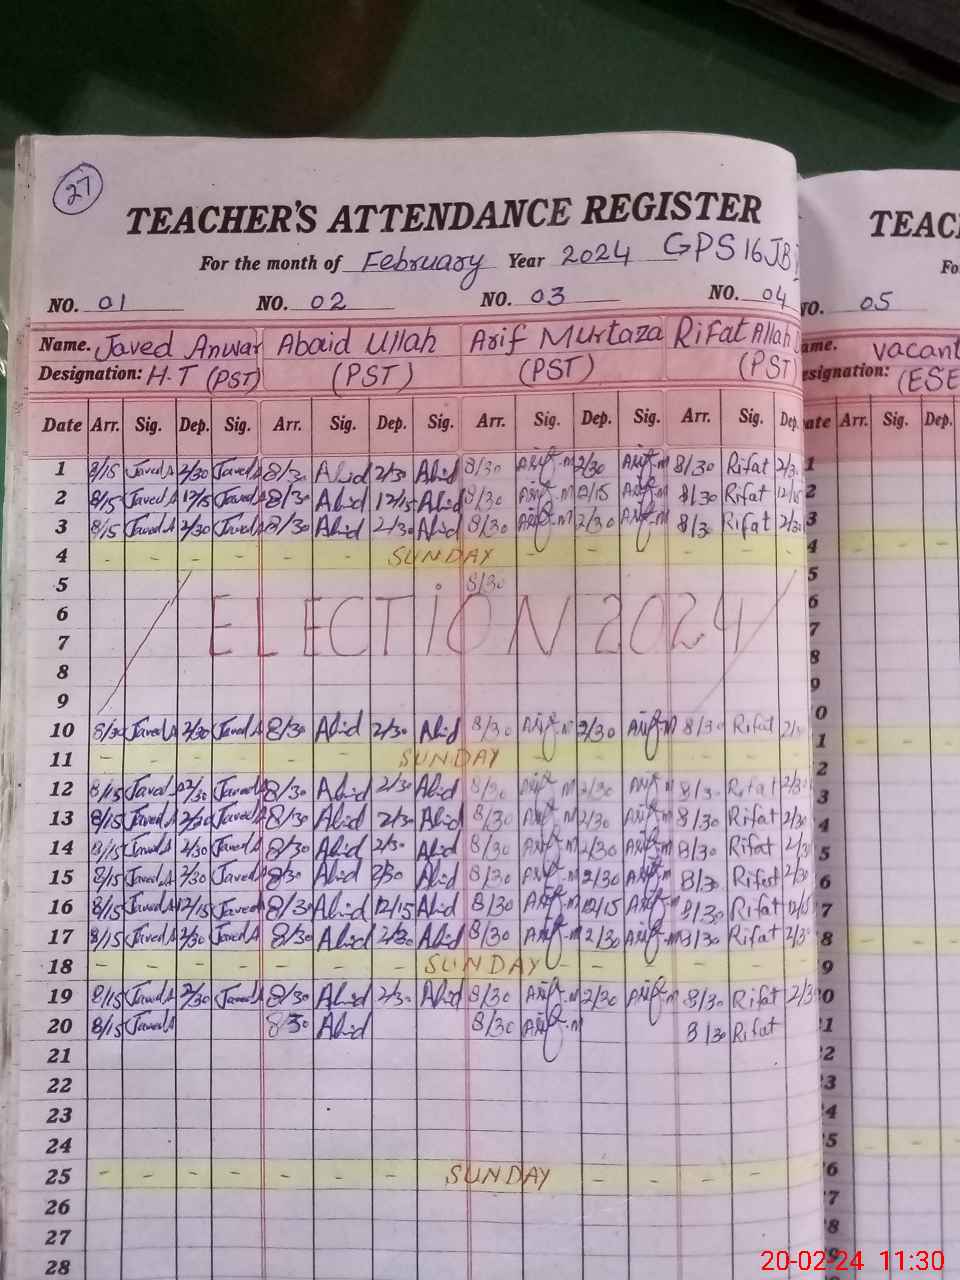 27
TEACHER'S ATTENDANCE REGISTER
For the month of February Year 2024 GPS 16 JB
NO. 01 NO. 02 NO. 03 NO. 04
Name. Javed Anwar Abaid Ullah Arif Murtaza Rifat Allah
Designation: H.T (PST) (PST) (PST) (PST)
Date Arr. Sig. Dep. Sig. Arr. Sig. Dep. Sig. Arr. Sig. Dep. Sig. Arr. Sig. Dep.
1 8/15 Javed A 2/30 Javed A 8/30 Abid 2/30 Abid 8/30 Arif.M 2/30 Arif.M 8/30 Rifat 2/30
2 8/15 Javed A 12/15 Javed A 8/30 Abid 12/15 Abid 8/30 Arif.M 12/15 Arif.M 8/30 Rifat 12/15
3 8/15 Javed A 2/30 Javed A 8/30 Abid 2/30 Abid 8/30 Arif.M 2/30 Arif.M 8/30 Rifat 2/30
4 - - - - - - SUNDAY - - - - - -
5 8/30
6
ELECTION 2024
7
8
9
10 8/30 Javed A 2/30 Javed A 8/30 Abid 2/30 Abid 8/30 Arif.M 2/30 Arif.M 8/30 Rifat 2/30
11 - - - - - - SUNDAY - - - - - -
12 8/15 Javed 2/30 Javed A 8/30 Abid 2/30 Abid 8/30 Arif.M 2/30 Arif.M 8/30 Rifat 2/30
13 8/15 Javed A 2/30 Javed A 8/30 Abid 2/30 Abid 8/30 Arif.M 2/30 Arif.M 8/30 Rifat 2/30
14 8/15 Javed A 2/30 Javed A 8/30 Abid 2/30 Abid 8/30 Arif.M 2/30 Arif.M 8/30 Rifat 2/30
15 8/15 Javed A 2/30 Javed A 8/30 Abid 2/30 Abid 8/30 Arif.M 2/30 Arif.M 8/30 Rifat 2/30
16 8/15 Javed A 12/15 Javed A 8/30 Abid 12/15 Abid 8/30 Arif.M 12/15 Arif.M 8/30 Rifat 12/15
17 8/15 Javed A 2/30 Javed A 8/30 Abid 2/30 Abid 8/30 Arif.M 2/30 Arif.M 8/30 Rifat 2/30
18 - - - - - - SUNDAY - - - - - -
19 8/15 Javed A 2/30 Javed A 8/30 Abid 2/30 Abid 8/30 Arif.M 2/30 Arif.M 8/30 Rifat 2/30
20 8/15 Javed A 8/30 Abid 8/30 Arif.M 8/30 Rifat
21
22
23
24
25 - - - - - - SUNDAY - - - - -
26
27
28
TEAC
Fo
NO. 05
ame. vacant
esignation: (ESE
ate Arr. Sig. Dep
1
2
3
4
5
6
7
8
9
0
1
2
3
4
5
6
7
8
9
0
1
2
3
4
5
6
7
8
9
20-02-24 11:30